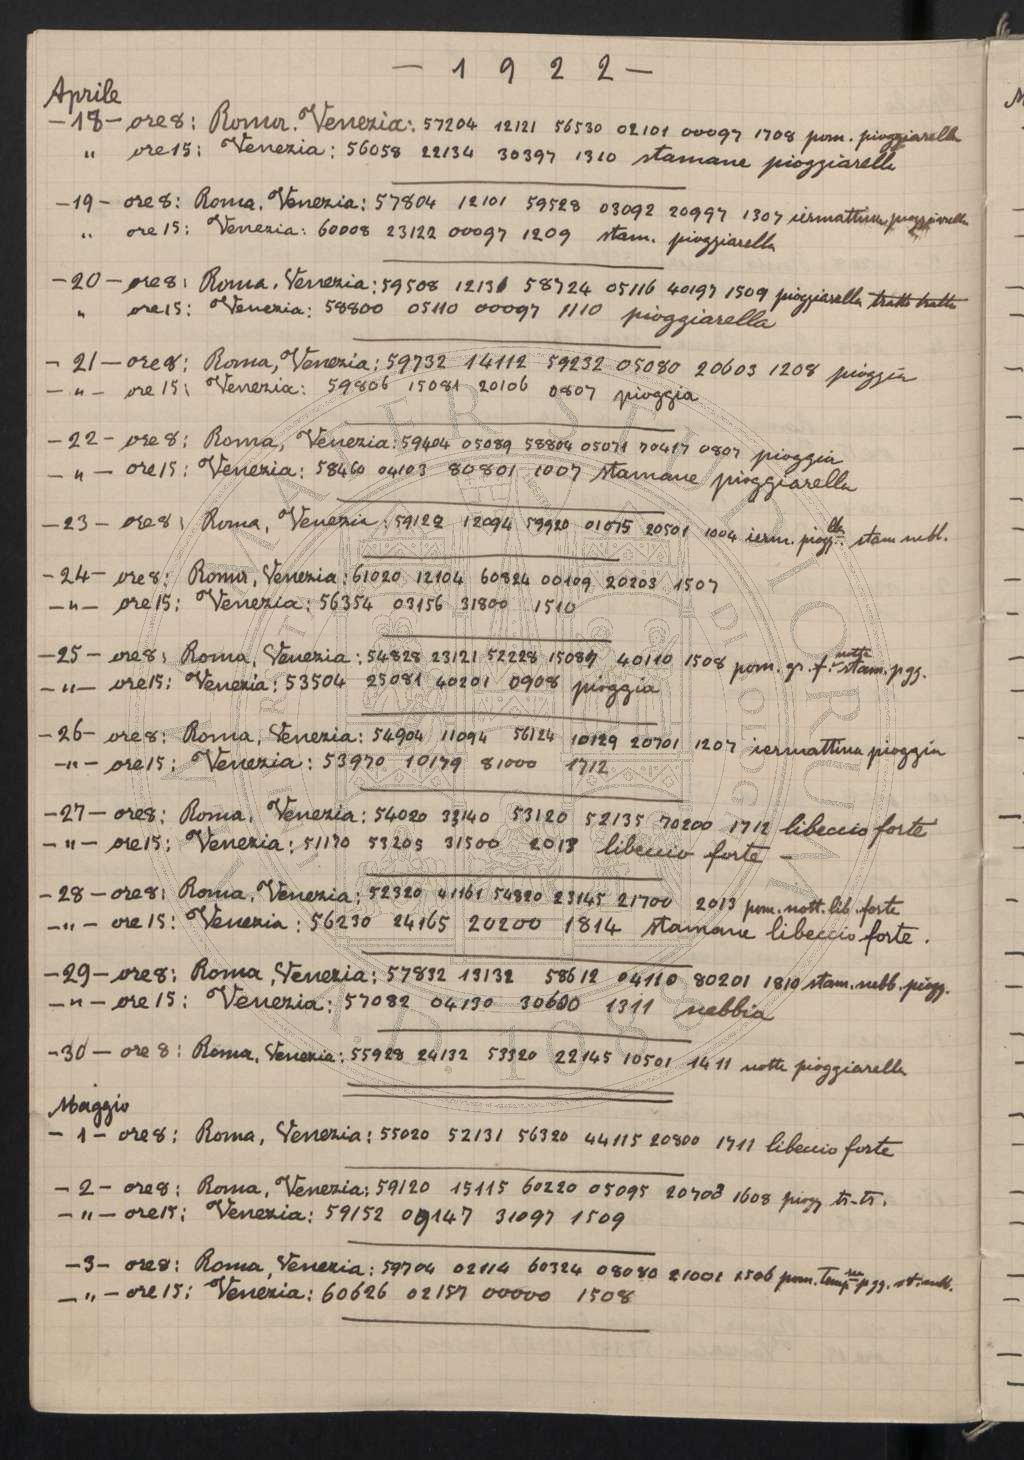 — 1 9 2 2 —
Aprile
– 18 – ore 8: Roma. Venezia: 57204 12121 56530 02101 00097 1708 pom. pioggiarella
" ore 15: Venezia: 56058 22134 30397 1310 stamane pioggiarella
– 19 – ore 8: Roma. Venezia: 57804 12101 59528 03092 20997 1307 iermattina pioggiarella
" ore 15: Venezia: 60008 23122 00097 1209 stam. pioggiarella
– 20 – ore 8: Roma. Venezia: 59508 12131 58724 05116 40197 1509 pioggiarella tratt tratt
" ore 15: Venezia: 58800 05110 00097 1110 pioggiarella
– 21 – ore 8: Roma, Venezia: 59732 14112 59232 05080 20603 1208 pioggia
– " – ore 15: Venezia: 59806 15081 20106 0807 pioggia
– 22 – ore 8: Roma, Venezia: 59404 05089 58804 05071 70417 0807 pioggia
– " – ore 15: Venezia: 58460 04103 80801 1007 stamane pioggiarella
– 23 – ore 8: Roma, Venezia: 59122 12094 59920 01075 20501 1004 ierm. piogg.lla stam nebb.
– 24 – ore 8: Roma, Venezia: 61020 12104 60824 00109 20203 1507
– " – ore 15: Venezia: 56354 03156 31800 1510
– 25 – ore 8: Roma, Venezia: 54828 23121 52228 15089 40110 1508 pom. gr. f. notte stam. pgg.
– " – ore 15: Venezia: 53504 25081 40201 0908 pioggia
– 26 – ore 8: Roma, Venezia: 54904 11094 56124 10129 20701 1207 iermattina pioggia
– " – ore 15: Venezia: 53970 10179 81000 1712
– 27 – ore 8: Roma, Venezia: 54020 33140 53120 52135 70200 1712 libeccio forte
– " – ore 15: Venezia: 51170 53205 31500 2013 libeccio forte –
– 28 – ore 8: Roma, Venezia: 52320 41161 54820 23145 21700 2013 pom. nott. lib. forte
– " – ore 15: Venezia: 56230 24165 20200 1814 stamane libeccio forte.
– 29 – ore 8: Roma, Venezia: 57832 13132 58612 04110 80201 1810 stam. nebb. piogg.
– " – ore 15: Venezia: 57082 04130 30600 1311 nebbia
– 30 – ore 8: Roma, Venezia: 55928 24132 53320 22145 10501 1411 notte pioggiarella
Maggio
– 1 – ore 8: Roma, Venezia: 55020 52131 56320 44115 20800 1711 libeccio forte
– 2 – ore 8: Roma, Venezia: 59120 15115 60220 05095 20703 1608 piogg tr-tr.
– " – ore 15: Venezia: 59152 09147 31097 1509
– 3 – ore 8: Roma, Venezia: 59704 02114 60324 08080 21001 1506 pom. pgg.
– " – ore 15: Venezia: 60626 02157 00000 1508